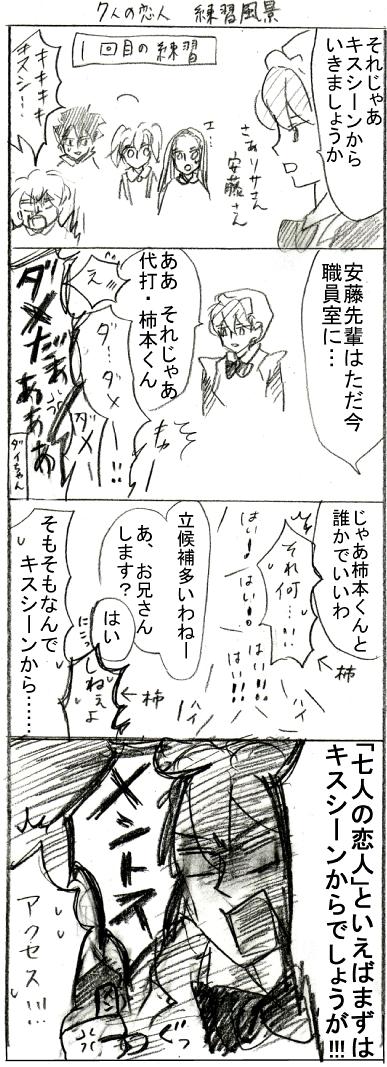 7人の恋人 練習風景
1回目の練習
それじゃあ
キスシーンから
いきましょうか
さあリサさん
安藤さん
エ…
キキキキ
キスシーン…
安藤先輩はただ今
職員室に…
ああ それじゃあ
代打・柿本くん
え
ダ…ダメ
ダメ…!!
ダメだぁ
あああ
ダイちゃん
じゃあ柿本くんと
誰かでいいわ
それ何…!
←柿
はい!
はい!!
はい!!
はい!!
ハイ
ハイ
立候補多いわねー
あ、お兄さん
します?
はい
にこっ
しねぇよ
←柿
そもそもなんで
キスシーンから……
「七人の恋人」といえばまずは
キスシーンからでしょうが!!!
メントテ
アクセス!!!
ぐっ